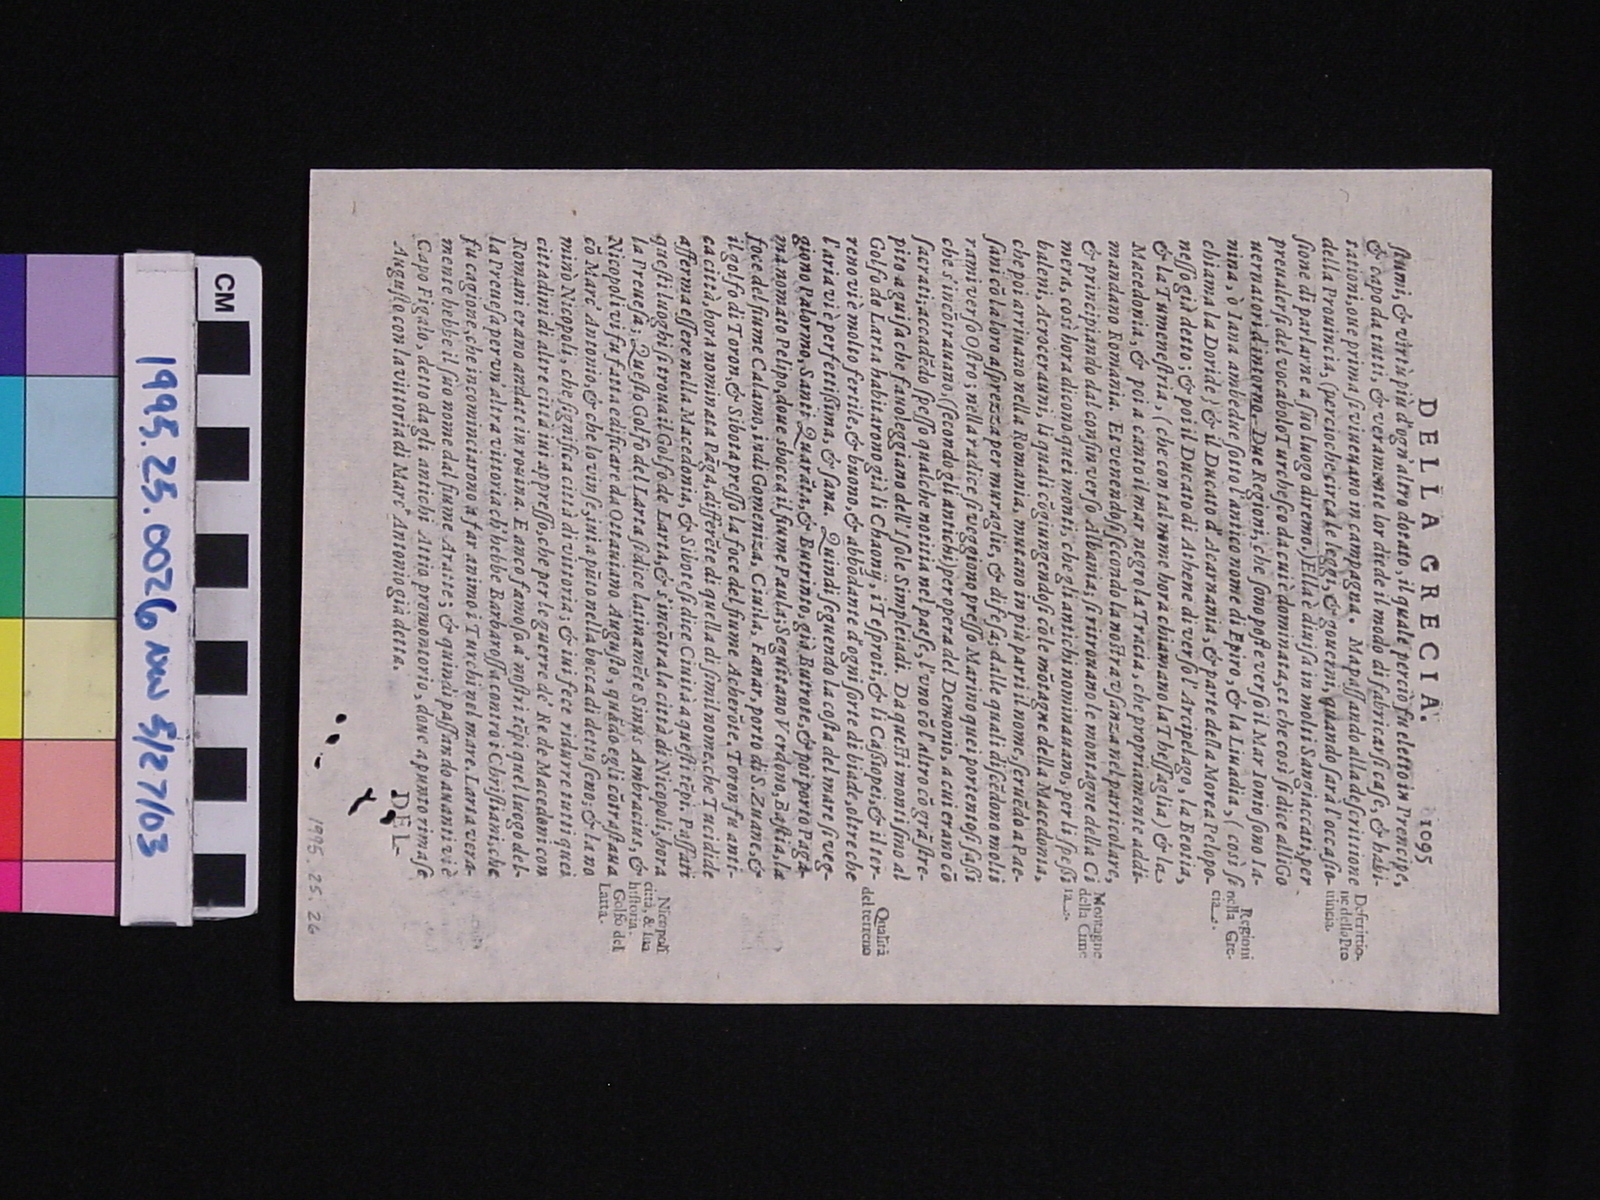 DELLA GRECIA. 1095
ſtumi, & virtù più d'ogn'altro dotato, il quale perciò fu eletto in Prencipe,
& capo da tutti, & veramẽte lor diede il modo di fabricarſi caſe, & habi-
tationi, oue prima ſi viueuano in campagna. Ma paſſando alla deſcrittione
della Prouincia, (percioche circa le leggi, & gouerni, quando ſarà l'occaſio-
ſione di parlarne a ſuo luogo diremo.) Ella è diuiſa in molti Sangiaccati, per
preualerſi del vocabolo Turcheſco di cui è dominata, et che coſi ſi dice alli Go
uernatori d'intorno. Due Regioni, che ſono poſte verſo il Mar Ionio ſono Ia-
nina, ò Iana ambedue ſotto l'antico nome di Epiro, & la Liuadia, (così ſi
chiama la Doride; & il Ducato d'Acarnania, & parte della Morea Pelopo-
neſſo già detto; & poi il Ducato di Athene di verſo l'Arcipelago, la Beotia,
& la Tumeneſtria, (che con tal nome hora chiamano la Theſſaglia) & la
Macedonia, & poi a canto il mar negro la Tracia, che propriamente addi-
mandano Romania. Et venendo ſi ſecondo la noſtra vſanza nel particolare,
& principiando dal confin verſo Albania, ſi ritrouano le montagne della Ci
mera, così hora dicono quei monti, che gli antichi nominauano, per li ſpeſſi
baleni, Acrocerauni, la quali cõgiungendoſi cõ le mõtagne della Macedonia,
che poi arriuano nella Romania, mutano in più parti il nome, ſeruẽdo a Pae-
ſani cõ la loro aſprezza per muraglie, & difeſa; dalle quali diſcẽdono molti
rami verſo Oſtro; nella radice ſi veggiono preſſo Marino quei portentoſi ſaſſi
che s'incõtrauano, (ſecondo gli antichi) per opera del Demonio, a cui erano cõ
ſacrati; accadẽdo ſpeſſo qualche notitia nel paeſe, l'vno cõ l'altro cõ grã ſtre-
pito a guiſa che fauoleggiano dell'Iſole Simplejadi. Da queſti monti fino al
Golfo de Larta habitarono già li Chaonij, i Teſproti, & li Caſſopei, & il ter-
reno vi è molto fertile, & buono, & abbõdante d'ogni ſorte di biade, oltre che
l'aria vi è perfettiſſima, & ſana. Quindi ſeguendo la coſta del mare ſi veg-
giono Palormo, Santi Quarãta, & Butrintio, già Butroto, & poi porto Paga-
nia nomato Pelipo, doue sbocca il fiume Paula; Seguitano Verdono, Baſtia, la
foce del fiume Calamo, indi Gomeniza, Ciuita, Fanar, porto di S. Zuane, &
il golfo di Toron, & Sibota preſſo la foce del fiume Acherõte. Toron fu anti-
ca città, hora nominata Paga, differẽte di quella di ſimil nome, che Tucidide
afferma eſſere nella Macedonia, & Sibote ſi dice Ciuita a queſti tẽpi. Paſſati
queſti luoghi ſi troua il Golfo de Larta, & s'incõtra la città di Nicopoli, hora
la Preueſa; Queſto Golfo del Larta ſi dice latinamẽte Sinus Ambracius, &
Nicopoli vi fu fatta edificare da Ottauiano Auguſto, quãdo egli cõtraſtaua
cõ Marc'Antonio, & che lo vinſe, in ta pũto nella bocca di detto ſeno, & la no
minò Nicopoli, che ſignifica città di vittoria; & vi fece ridurre tutti quei
cittadini di altre città iui appreſſo, che per le guerre de' Re de Macedoni con
Romani erano andate in rouina. E anco famoſa a noſtri tẽpi quel luogo del-
la Preueſa per vn'altra vittoria, ch'hebbe Barbaroſſa contro i Chriſtiani, che
fu cagione, che incominciarono a far animo i Turchi nel mare. Larta vera-
mente hebbe il ſuo nome dal fiume Aratte; & quindi paſſando auanti vi è
Capo Figalo, detto dagli antichi Attio promontorio, doue a punto rimaſe
Auguſto con la vittoria di Marc'Antonio già detta.
DEL-
Deſcrittio-
ne della Pro
uincia.
Regioni
nella Gre-
cia.
Montagne
della Cime
ra.
Qualità
del terreno
Nicopoli
città, & ſua
hiſtoria.
Golfo del
Larta.
1995. 25. 26
CM
1995.25.0026 nw 5/27/03